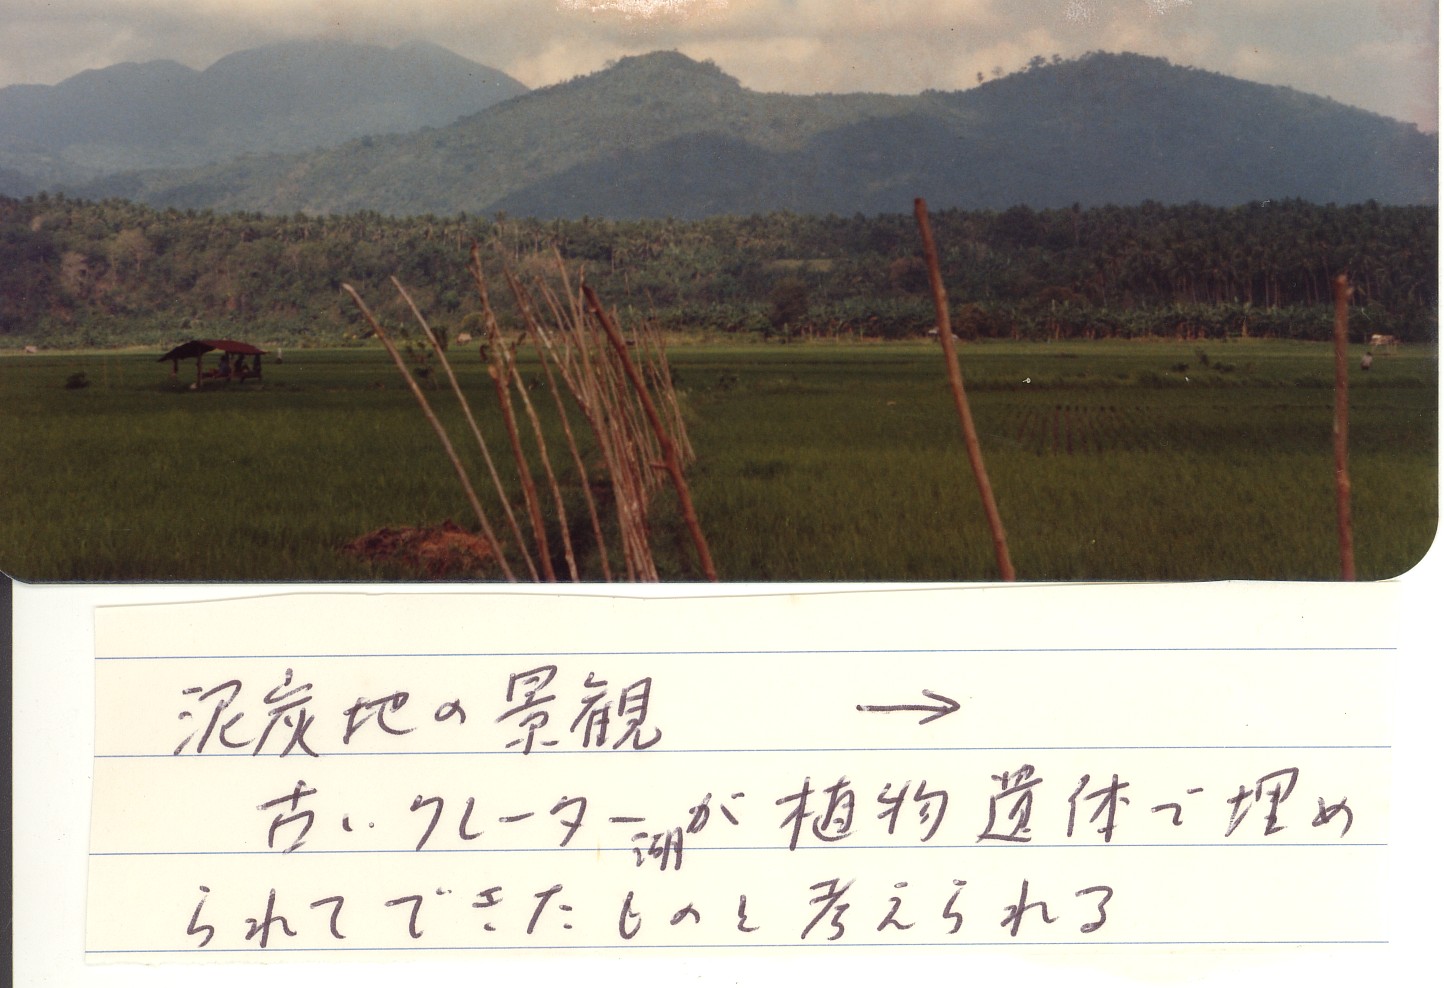 泥炭地の景観 →
古いクレーター湖が植物遺体で埋め
られてできたものと考えられる